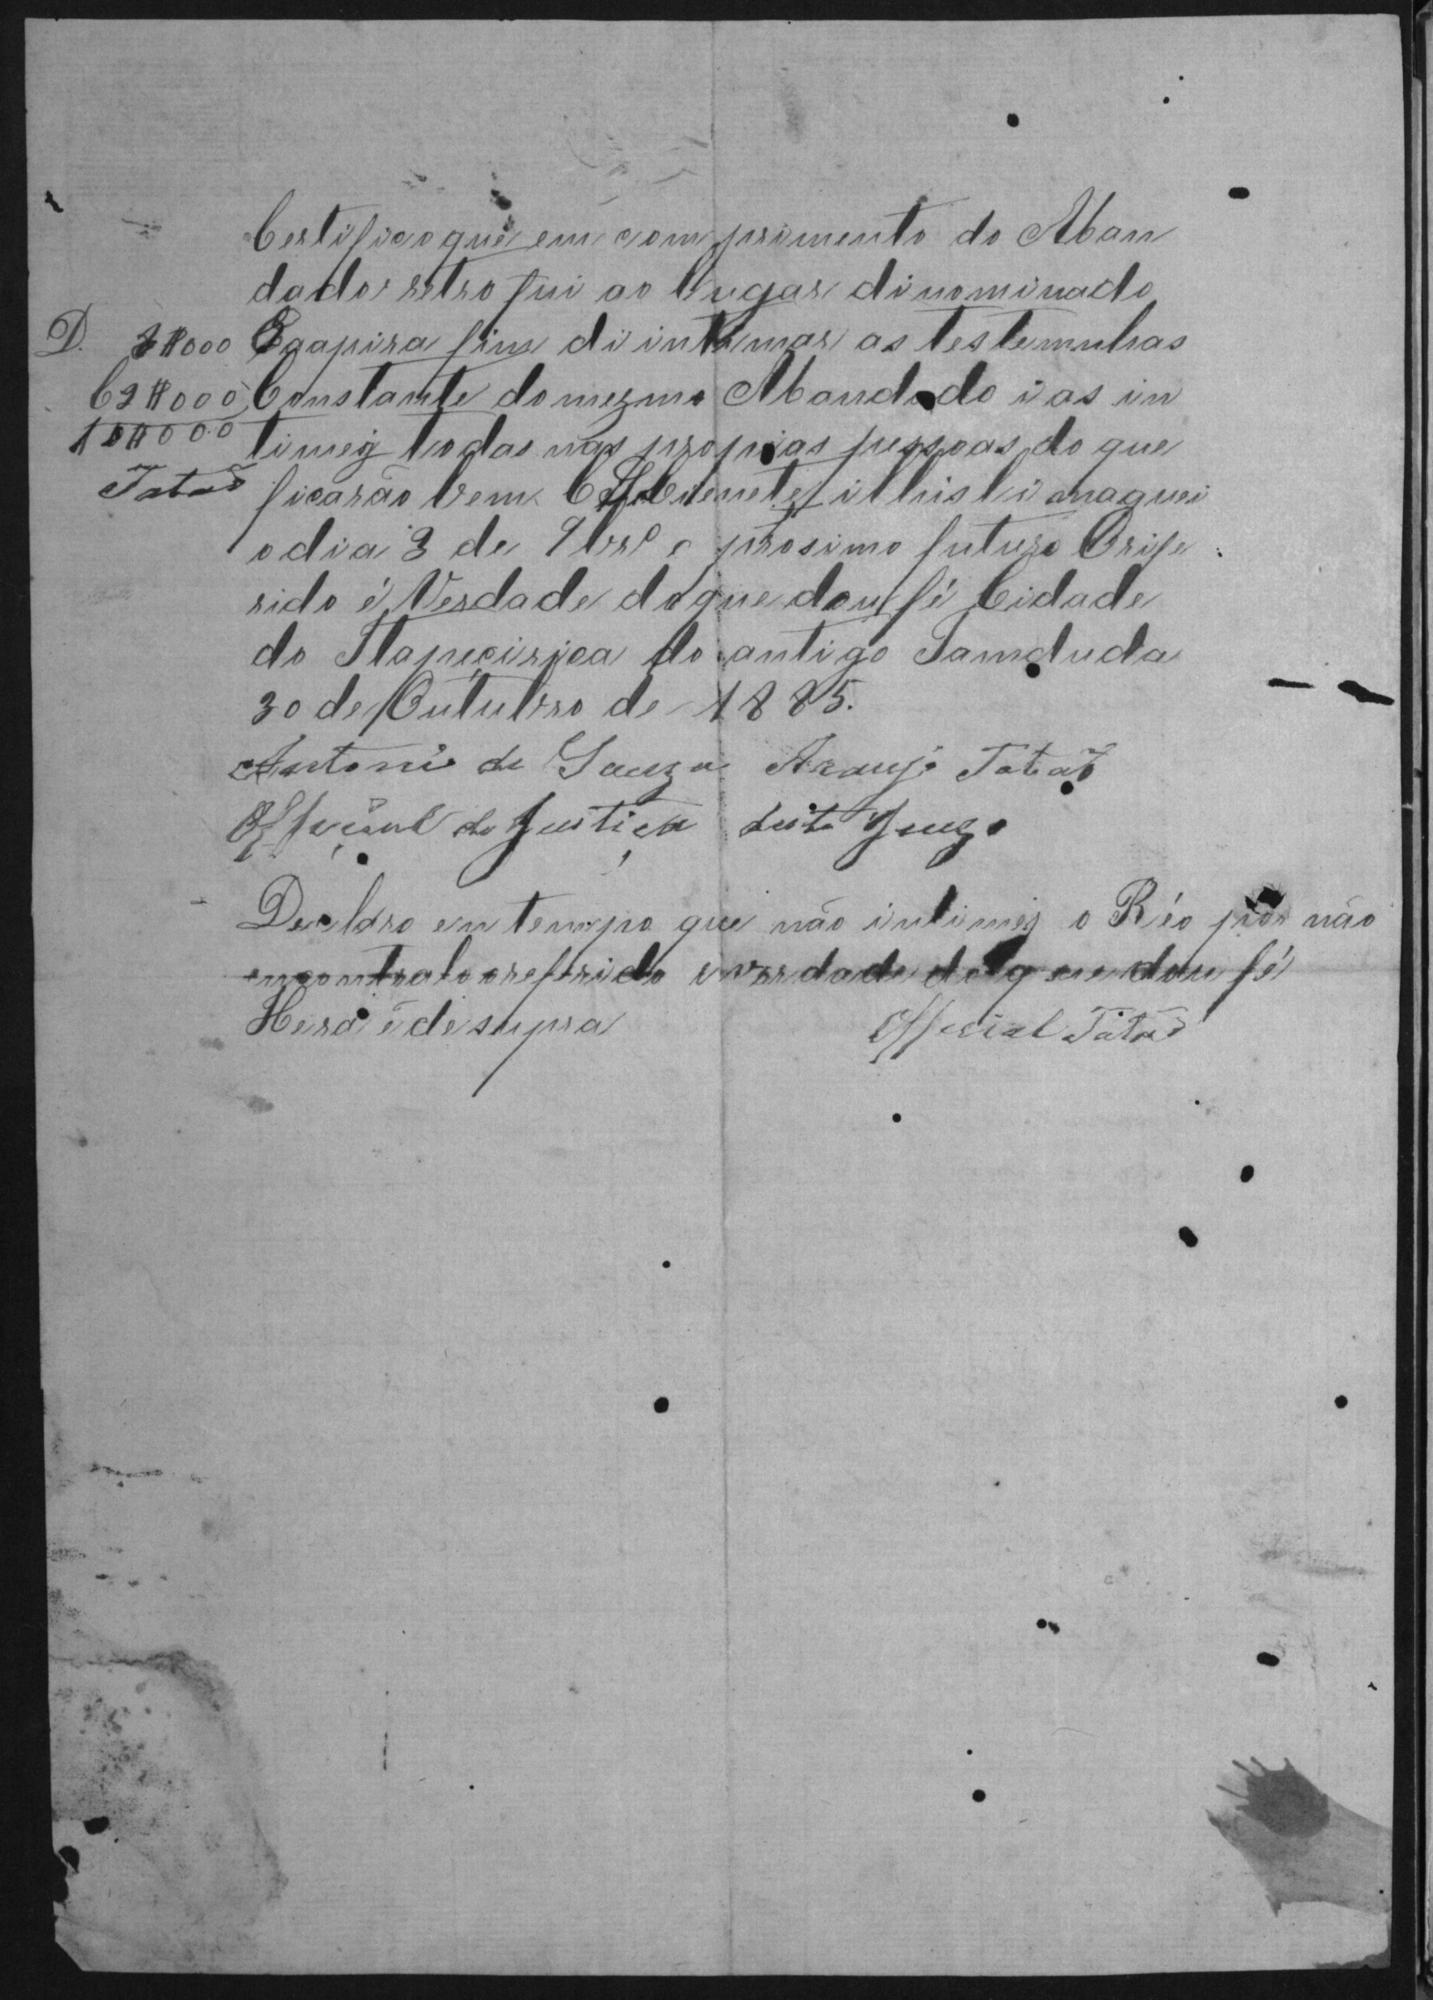 Certifico que em comprimento do Man
dado retro fui ao lugar dinominado
D. 8#000 Goapira fim di intimar as testemunhas
C 2#000 Constante do mezmo Mandado i as in
10#000 timeg todas nas propias pessoas do que
Tataó ficarão bem i lhis li maquei
o dia 3 de 9br.º prosimo futuro Orife
rido é Verdade do que dou fé Cidade
do Itapecirica do antigo Tamduda
30 de Outubro de 1885.
Antonio de Souza Araujo Tataó
Official de Justiça deste Juizo
Declaro em tempo que não intimeg o Réo por não
encontralo oreferido e verdade do que dou fé
Hera é de supra Official Tataó